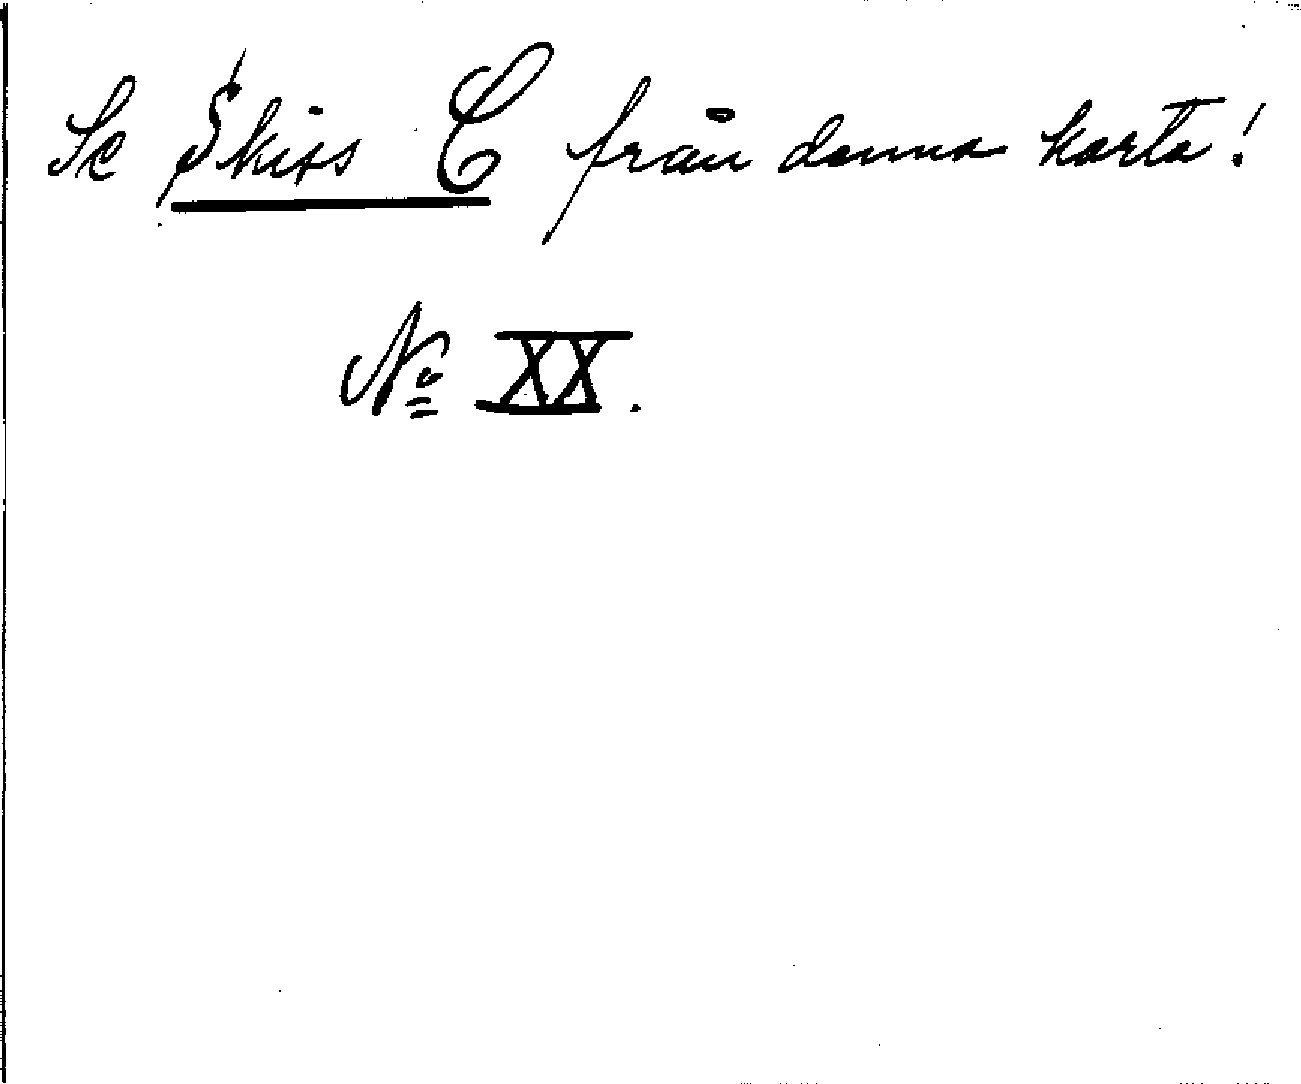 Se Skiss C från denna karta!
No XX.